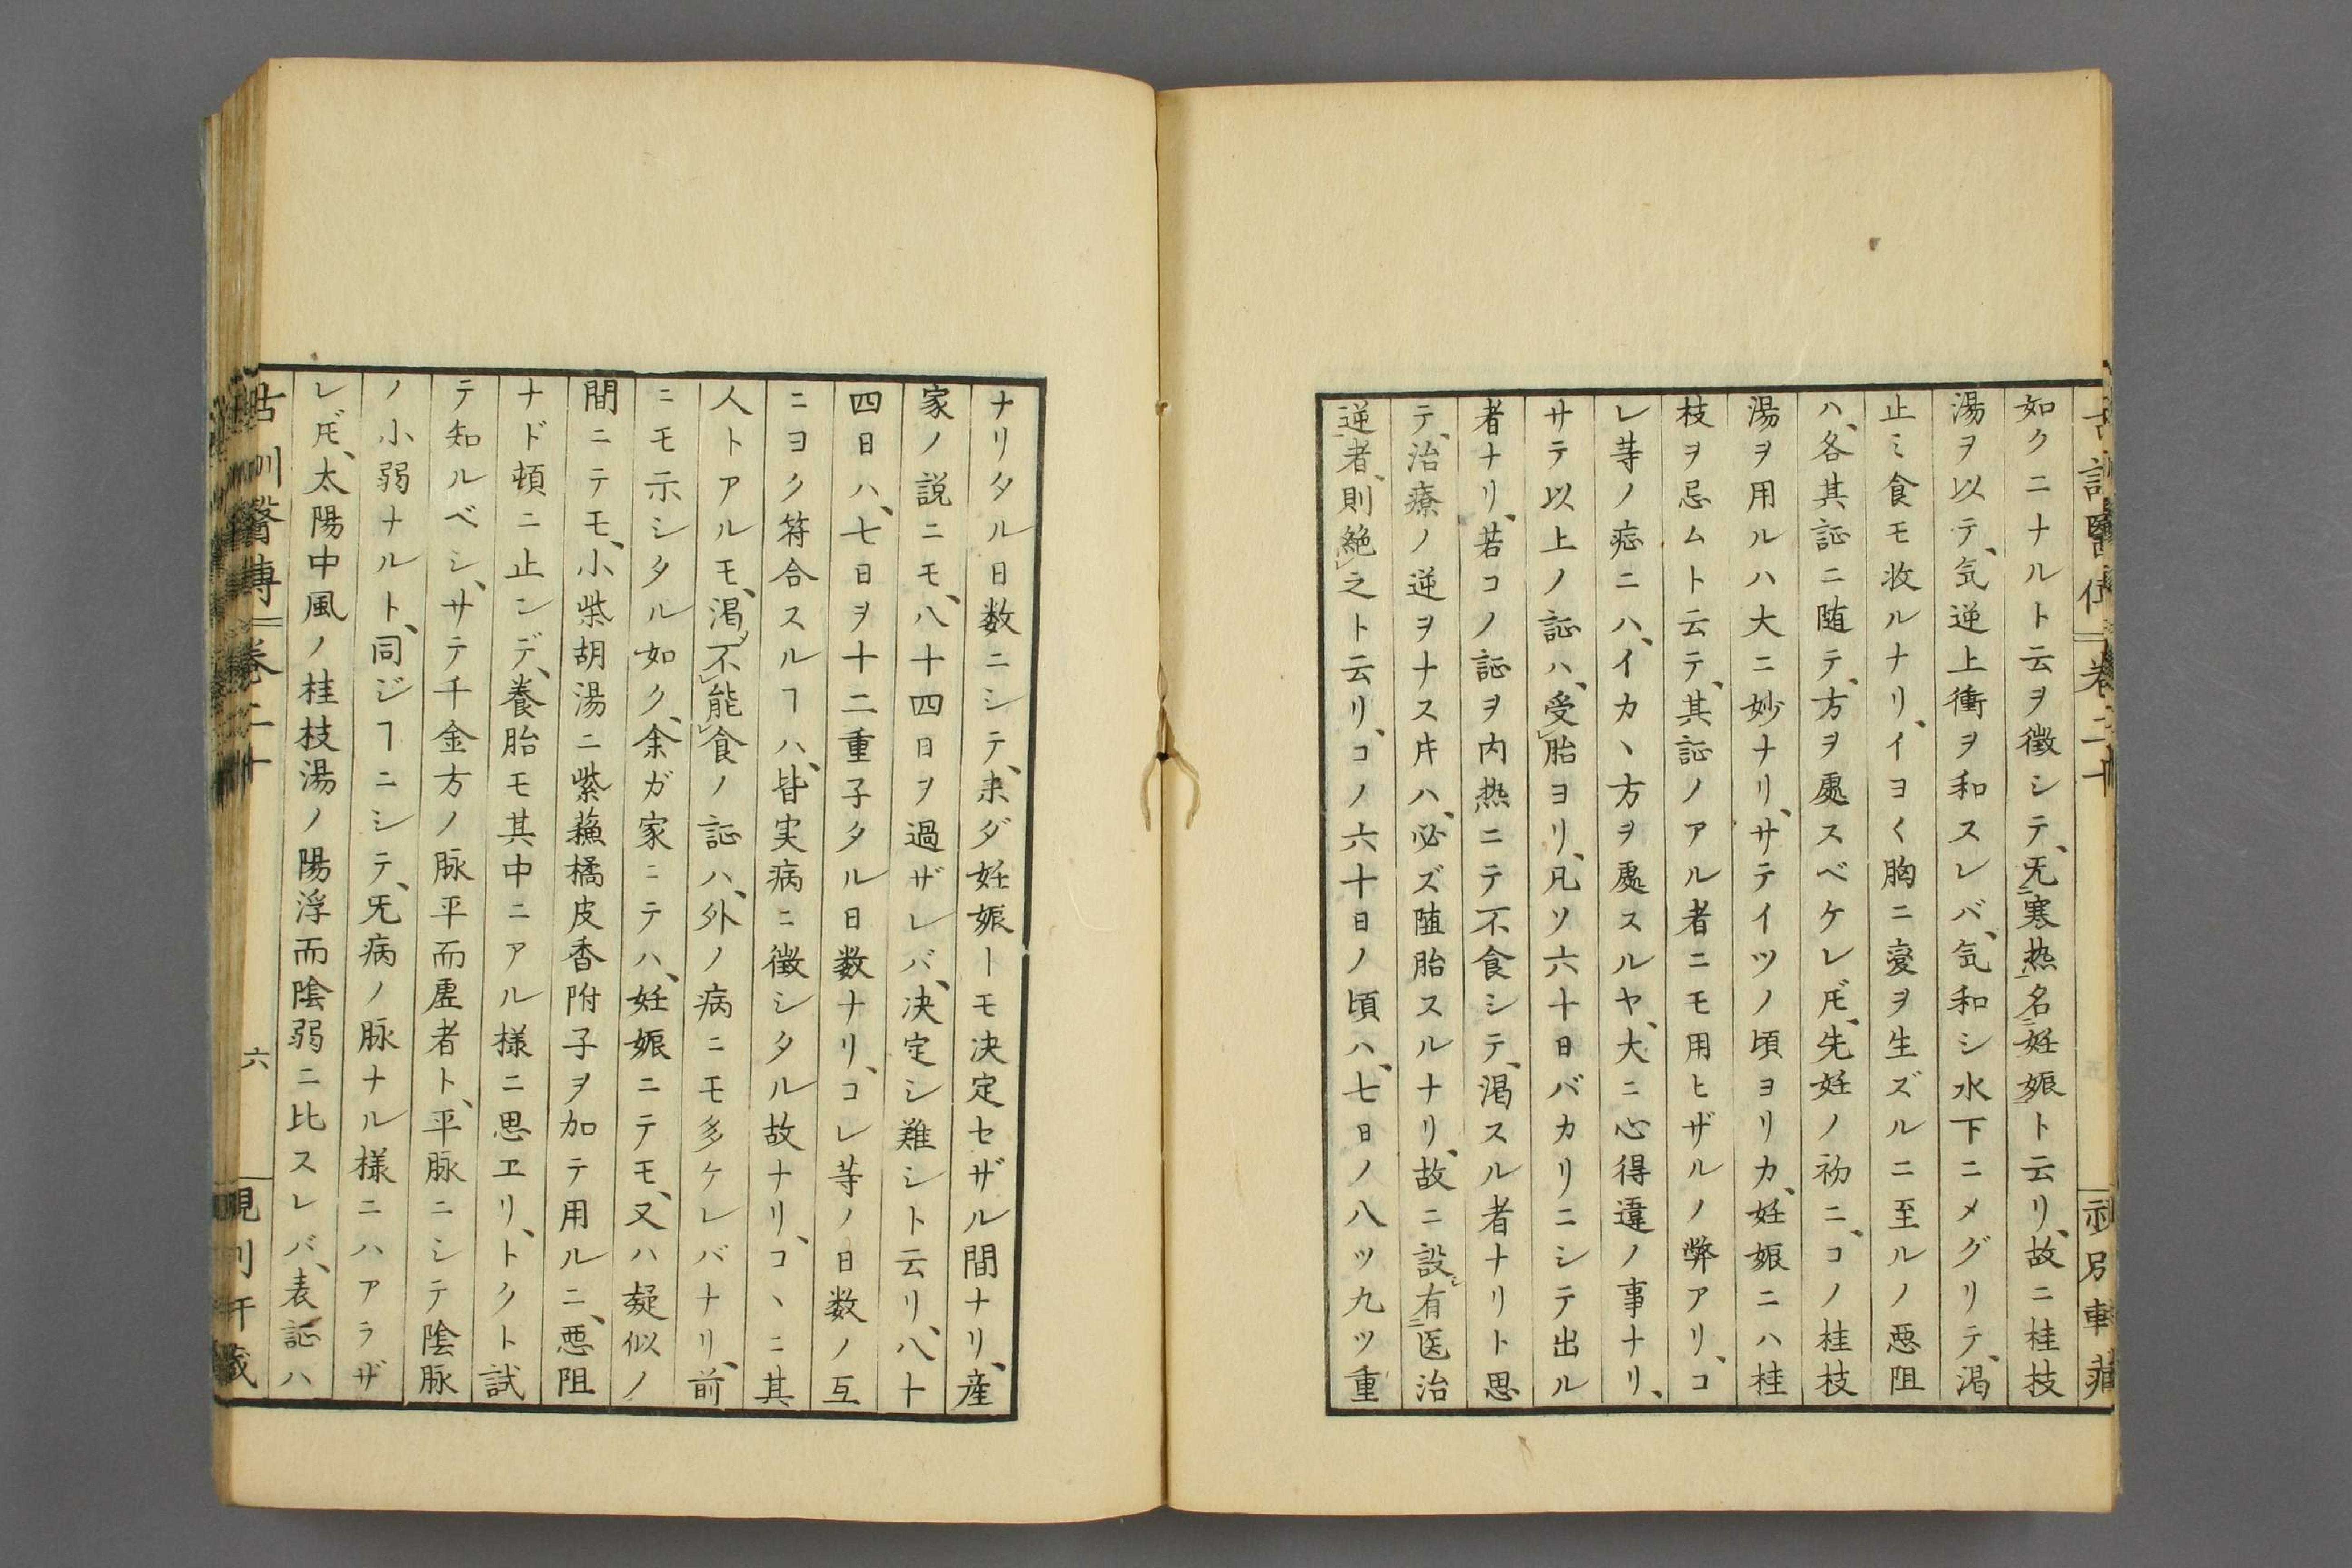 如クニナルト云ヲ徴シテ、无寒热名妊娠ト云リ、故ニ桂枝
湯ヲ以テ、気逆上衝ヲ和スレバ、気和シ水下ニメグリテ、渇
止ミ食モ收ルナリ、イヨく胸ニ変ヲ生ズルニ至ルノ悪阻
ハ、各其証ニ随テ、方ヲ處スベケレ𪜈、先妊ノ初ニ、コノ桂枝
湯ヲ用ルハ大ニ妙ナリ、サテイツノ頃ヨリカ、妊娠ニハ桂
枝ヲ忌ムト云テ、其証ノアル者ニモ用ヒザルノ弊アリ、コ
レ等ノ症ニハ、イカヽ方ヲ處スルヤ、大ニ心得違ノ事ナリ、
サテ以上ノ証ハ、受胎ヨリ、凡ソ六十日バカリニシテ出ル
者ナリ、若コノ証ヲ内热ニテ不食シテ、渇スル者ナリト思
テ、治療ノ逆ヲナス𪜈ハ、必ズ堕胎スルナリ、故ニ設有医治
逆者、則絶之ト云リ、コノ六十日ノ頃ハ、七日ノ八ツ九ツ重
ナリタル日数ニシテ、未ダ妊娠ーモ決定セザル間ナリ、産
家ノ説ニモ、八十四日ヲ過ザレバ、決定シ難シト云リ、八十
四日ハ、七日ヲ十二重子タル日数ナリ、コレ等ノ日数ノ互
ニヨク符合スルヿハ、皆実病ニ徴シタル故ナリ、コヽニ其
人トアルモ、渇不能食ノ証ハ、外ノ病ニモ多ケレバナリ、前
ニモ示シタル如ク、余ガ家ニテハ、妊娠ニテモ、又ハ疑似ノ
間ニテモ、小柴胡湯ニ紫蘓橘皮香附子ヲ加テ用ルニ、悪阻
ナド頓ニ止ンデ、養胎モ其中ニアル様ニ思ヱリ、トクト試
テ知ルベシ、サテ千金方ノ脉平而虚者ト、平脉ニシテ陰脉
ノ小弱ナルト、同ジヿニシテ、无病ノ脉ナル様ニハアラザ
レ𪜈、太陽中風ノ桂枝湯ノ陽浮而陰弱ニ比スレバ、表証ハ
古訓醫傳 卷二十
六